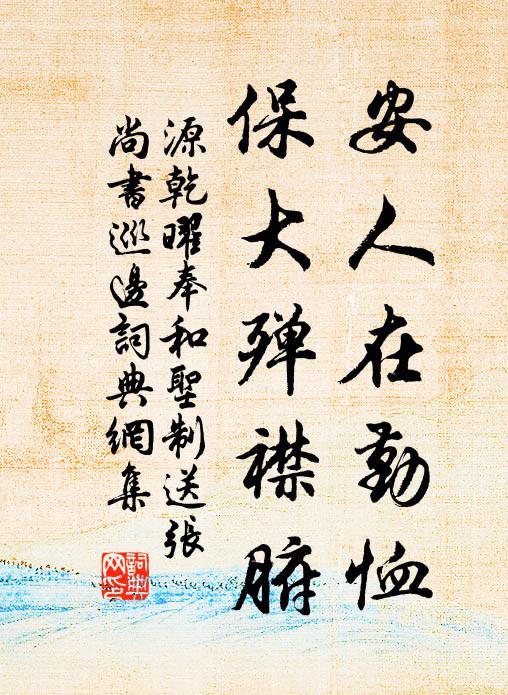 安人在勤恤
保大殫襟腑
源乾曜奉和聖制送張
尚書巡邊詞典網集
詞典網印